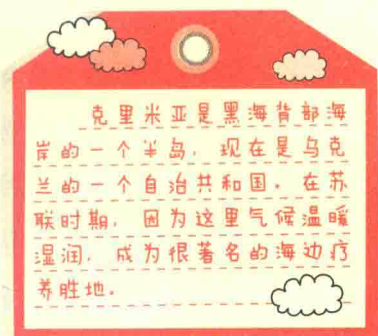 克里米亚是黑海背部海
岸的一个半岛，现在是乌克
兰的一个自治共和国。在苏
联时期，因为这里气候温暖
湿润，成为很著名的海边疗
养胜地。